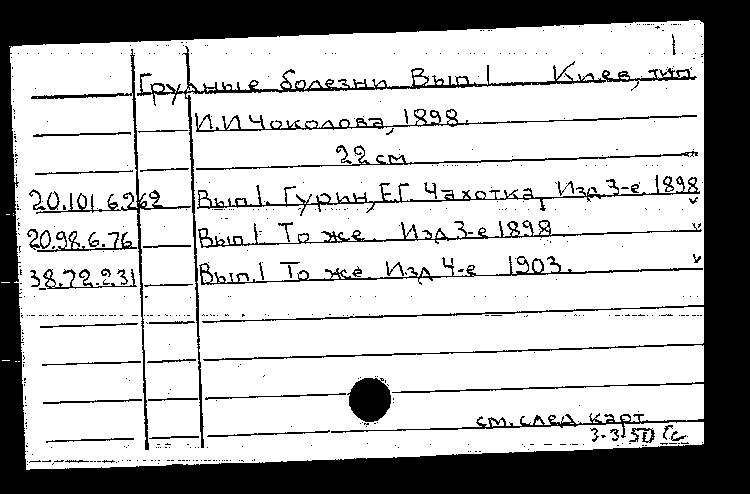 1
Грудные болезни Вып 1 Киев, тип
И.И Чоколова, 1898.
22 см
20.101.6.262 Вып 1. Гурин, Е.Г. Чахотка, Изд 3-е. 1898
20.98.6.76 Вып 1 То же. Изд 3-е 1898
38.72.231 Вып. 1 То же Изд 4-е 1903.
см. след карт
3-3-50